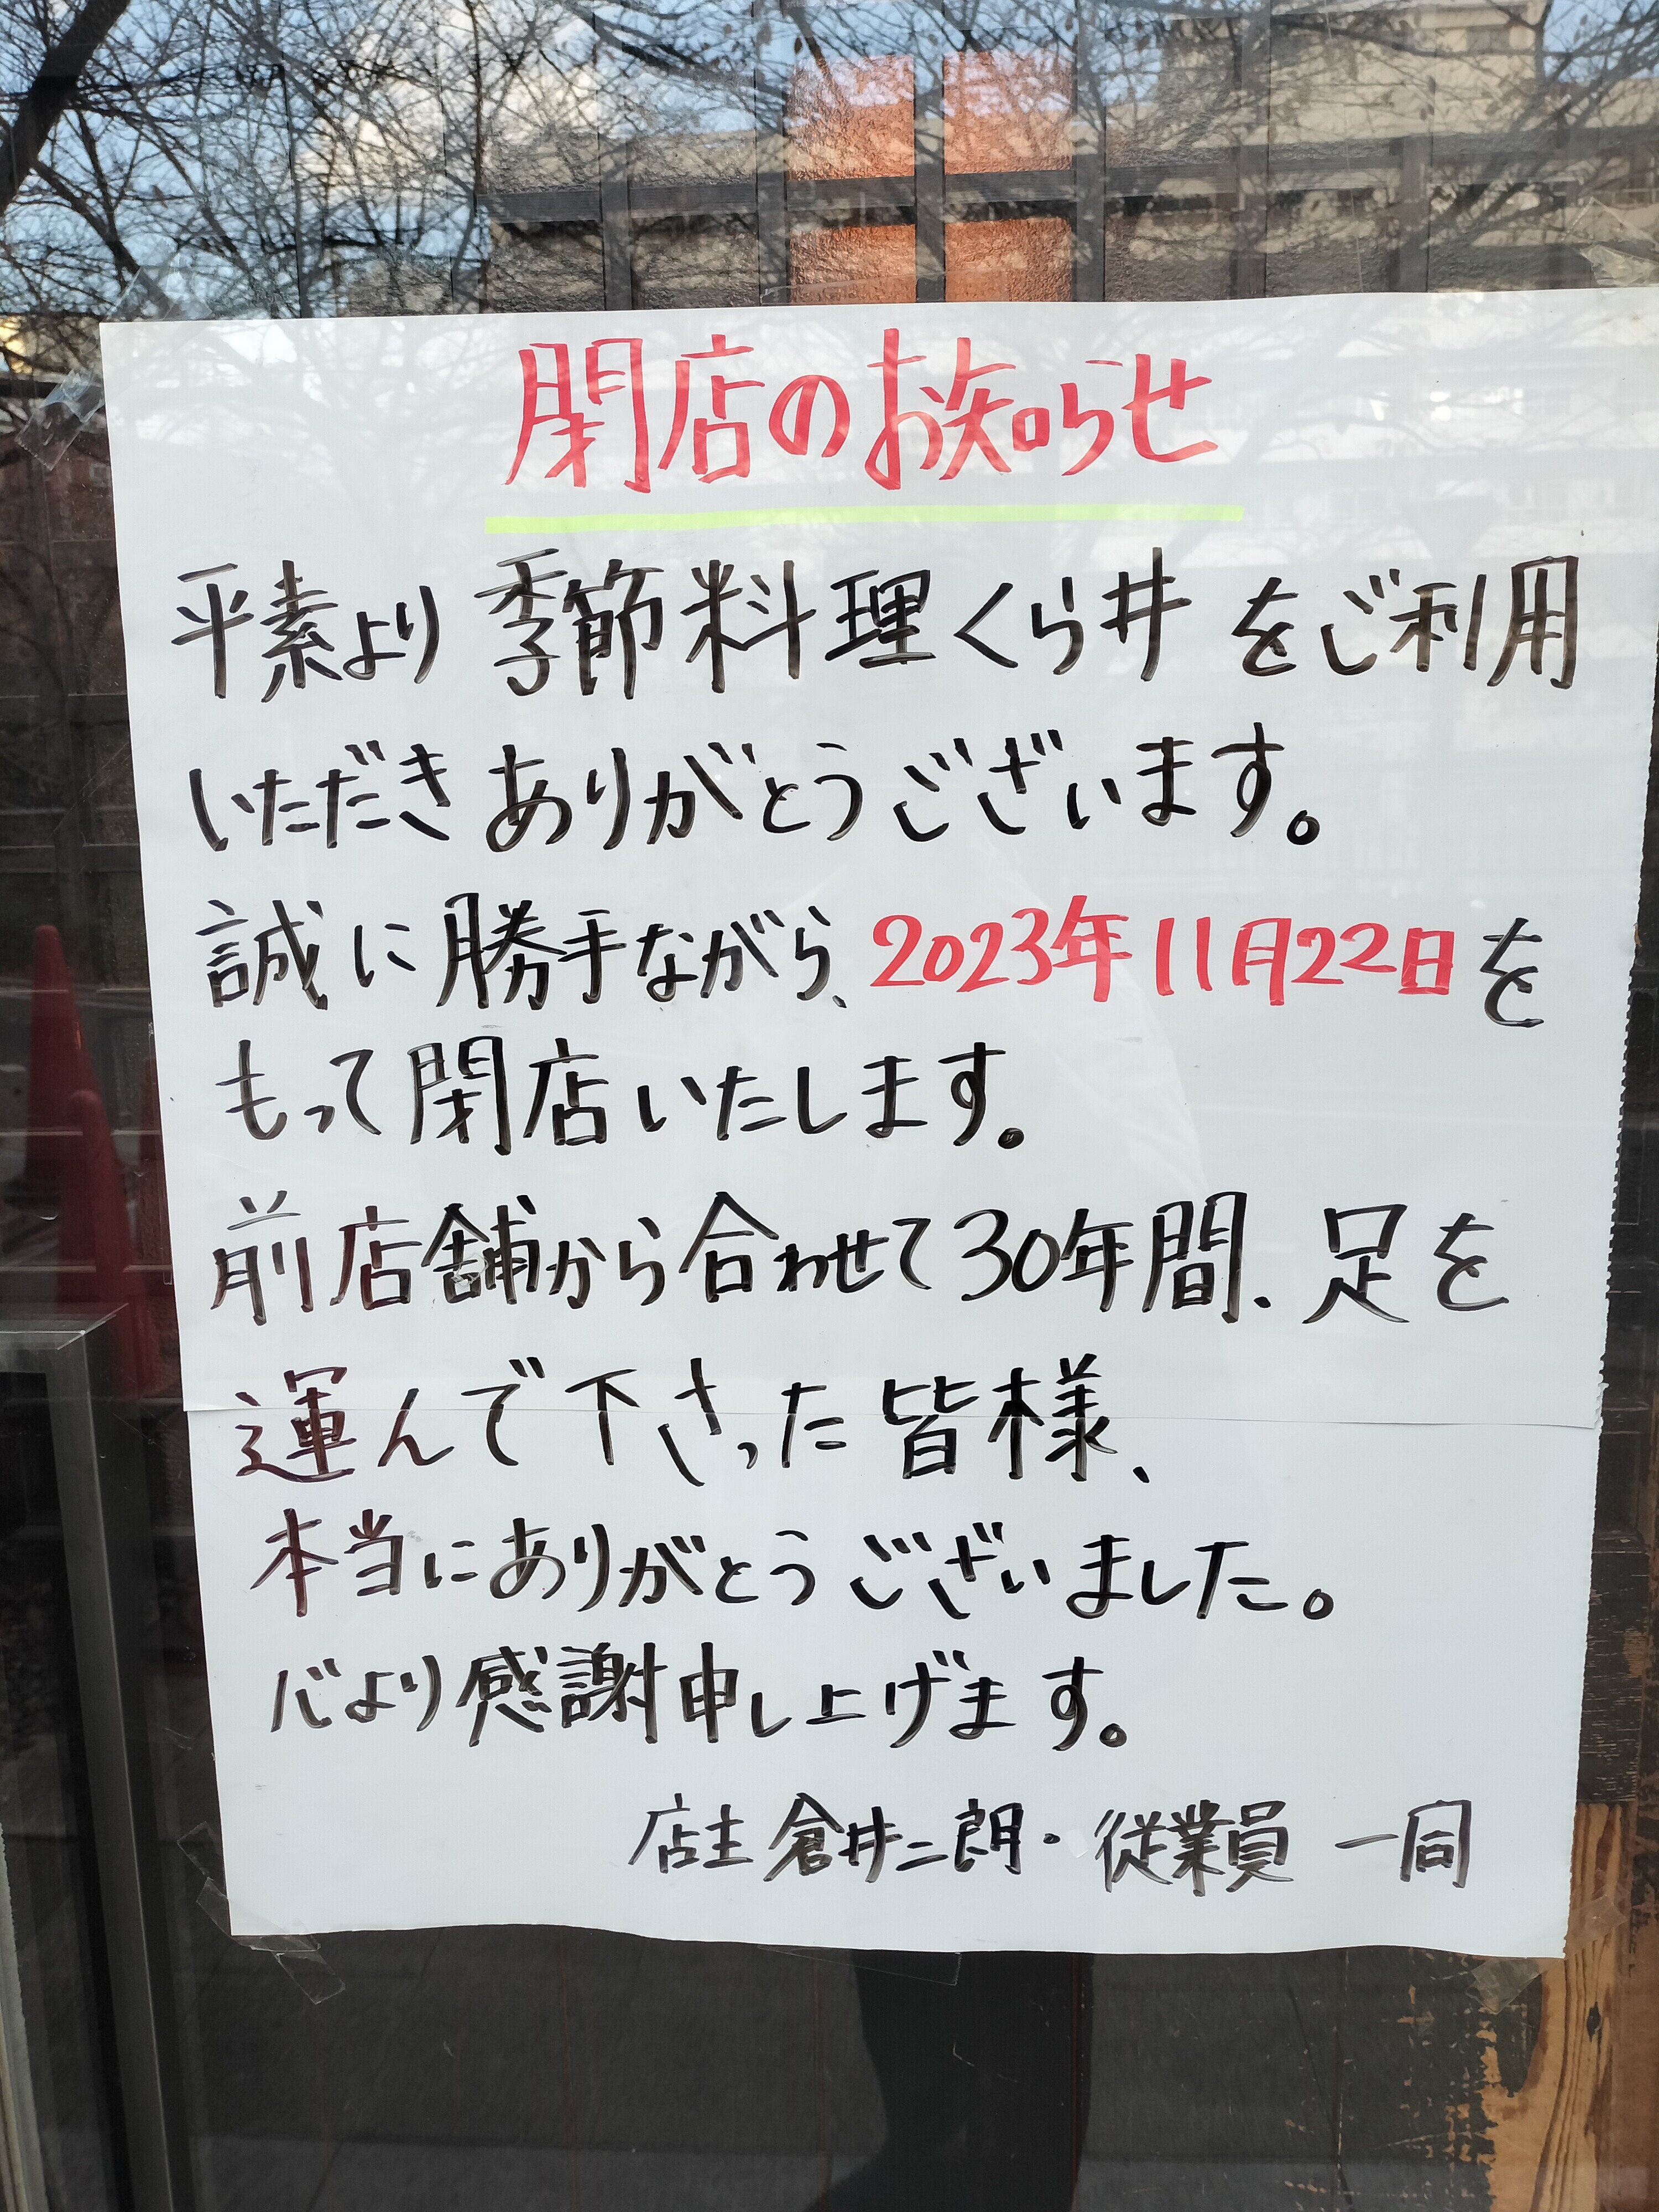 閉店のお知らせ
平素より 季節料理くら井 をご利用
いただき ありがとうございます。
誠に勝手ながら、2023年11月22日を
もって閉店いたします。
前店舗から合わせて30年間、足を
運んで下さった皆様、
本当にありがとうございました。
心より感謝申し上げます。
店主 倉井二朗・従業員 一同